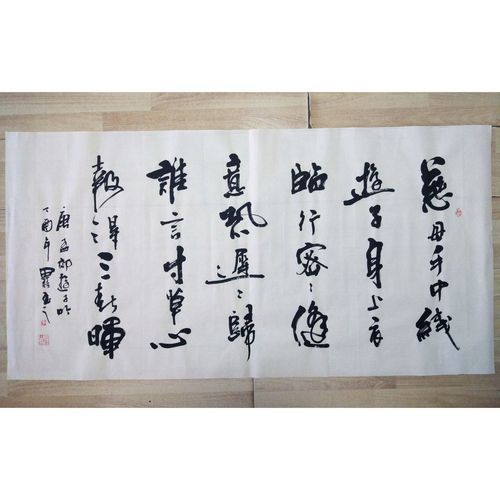 慈母手中綫
遊子身上衣
臨行密〻縫
意恐遲〻歸
誰言寸草心
報得三春暉
唐孟郊遊子吟
丁酉年